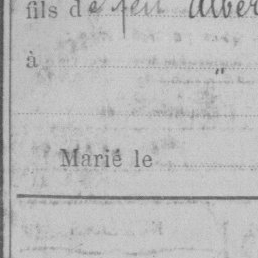 fils de feu Alber
à "
Marié le